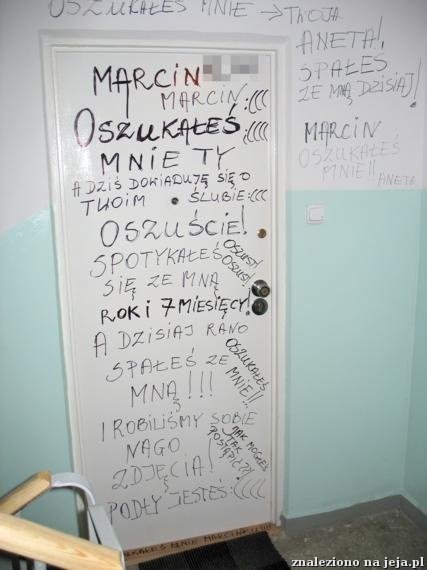 OSZUKAŁEŚ MNIE → TWOJA
ANETA!
SPAŁEŚ
ZE MNĄ DZISIAJ!
MARCIN
OSZUKAŁEŚ
MNIE!!
ANETA
MARCIN
MARCIN :(((
OSZUKAŁEŚ :((((
MNIE TY
A DZIŚ DOWIADUJĘ SIĘ O
TWOIM ŚLUBIE :(((
OSZUŚCIE!
SPOTYKAŁEŚ
SIĘ ZE MNĄ
ROK I 7 MIESIĘCY!
OSZUST!
OSZUST!
A DZISIAJ RANO
SPAŁEŚ ZE
MNĄ!!!
OSZUKAŁEŚ
MNIE!!
I ROBILIŚMY SOBIE
NAGO
ZDJĘCIA!
JAK MOGŁEŚ
TAK
POSTĄPIĆ?!
PODŁY JESTEŚ :((((
OSZUKAŁEŚ MNIE
znaleziono na jeja.pl